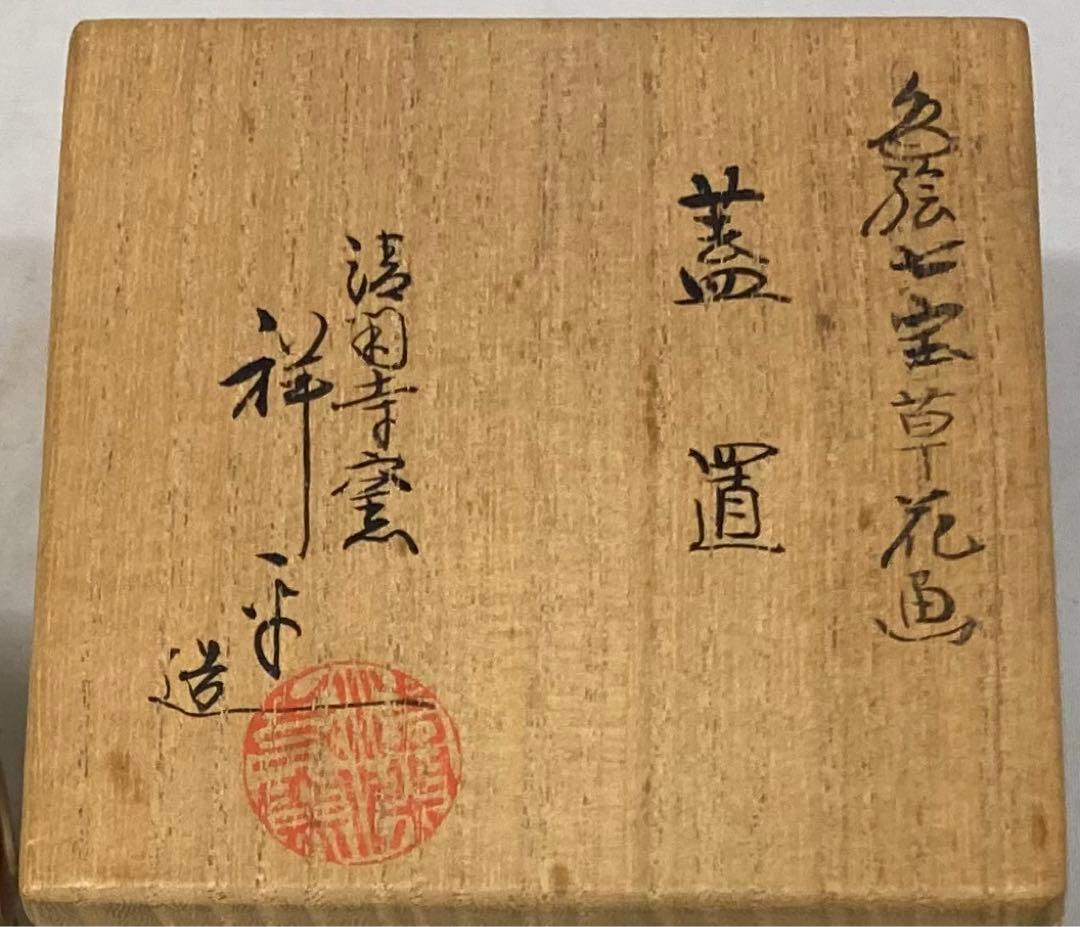 色絵七宝草花画
蓋置
清閑寺窯
祥平
造